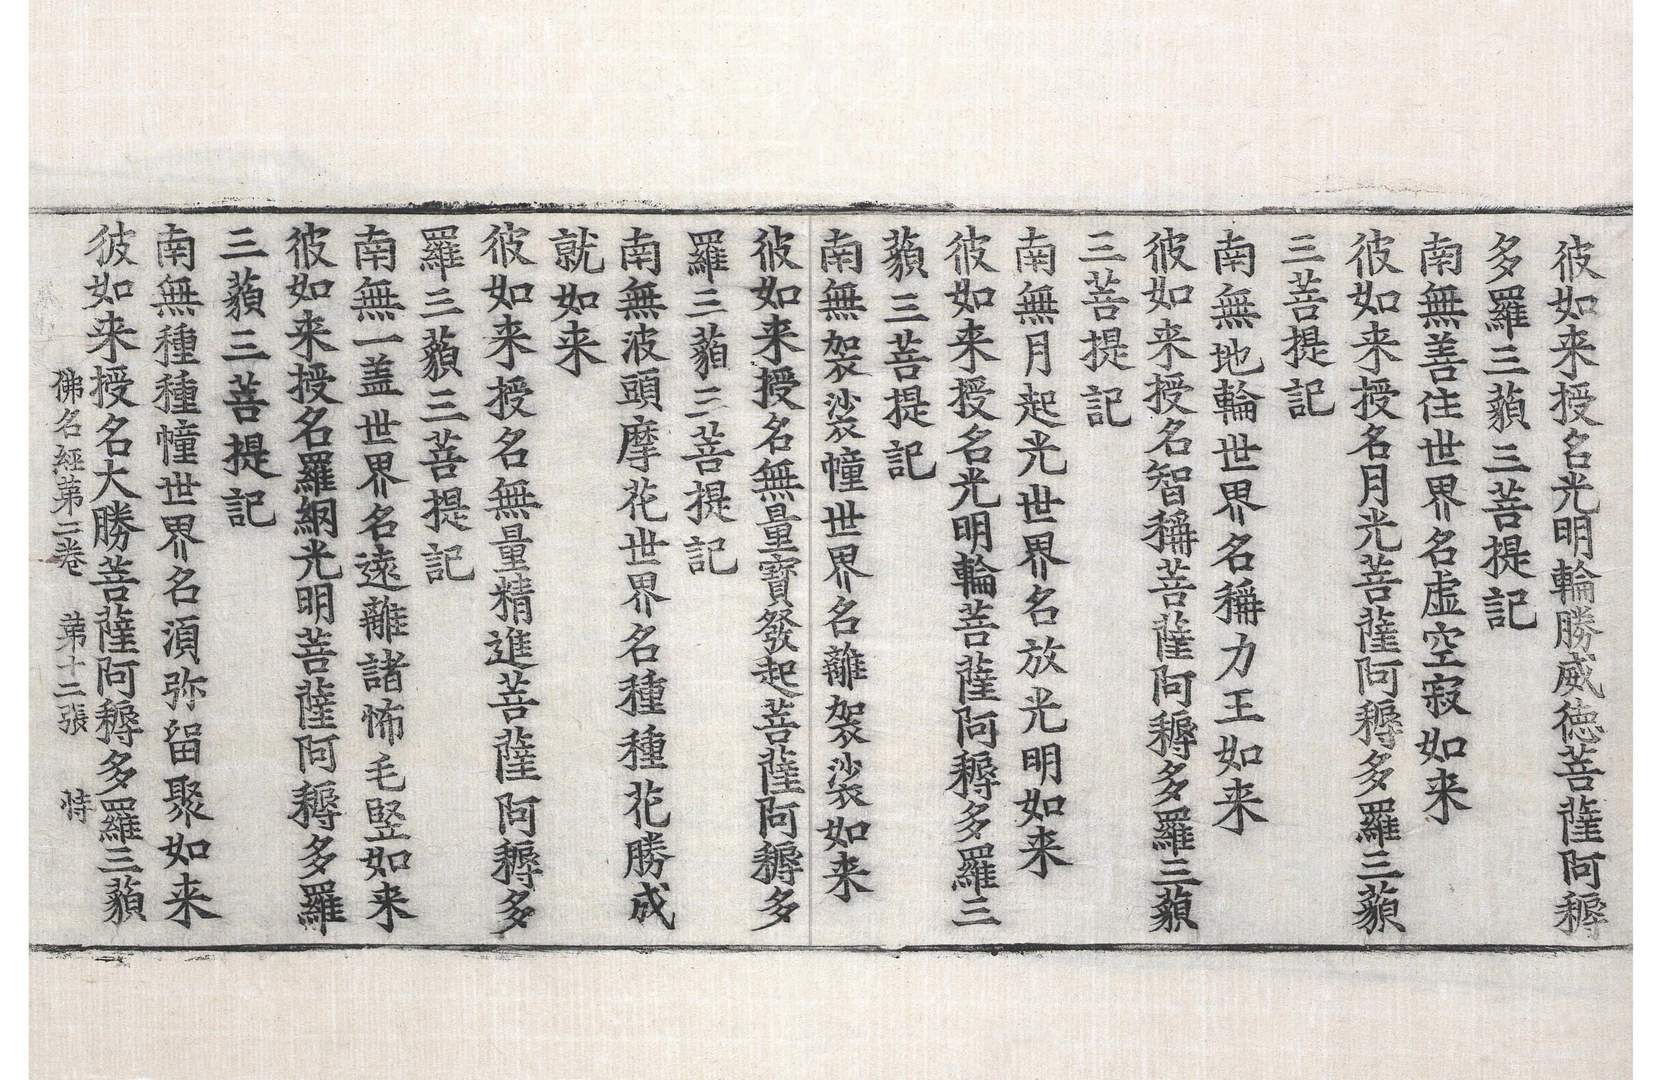 彼如来授名光明輪勝威徳菩薩阿耨
多羅三藐三菩提記
南無善住世界名虚空寂如来
彼如来授名月光菩薩阿耨多羅三藐
三菩提記
南無地輪世界名稱力王如来
彼如来授名智稱菩薩阿耨多羅三藐
三菩提記
南無月起光世界名放光明如来
彼如来授名光明輪菩薩阿耨多羅三
藐三菩提記
南無袈裟幢世界名離袈裟如来
彼如来授名無量寶發起菩薩阿耨多
羅三藐三菩提記
南無波頭摩花世界名種種花勝成
就如来
彼如来授名無量精進菩薩阿耨多
羅三藐三菩提記
南無一盖世界名遠離諸怖毛竪如来
彼如来授名羅網光明菩薩阿耨多羅
三藐三菩提記
南無種種幢世界名湏弥留聚如来
彼如来授名大勝菩薩阿耨多羅三藐
佛名經第三卷 第十二張 恃